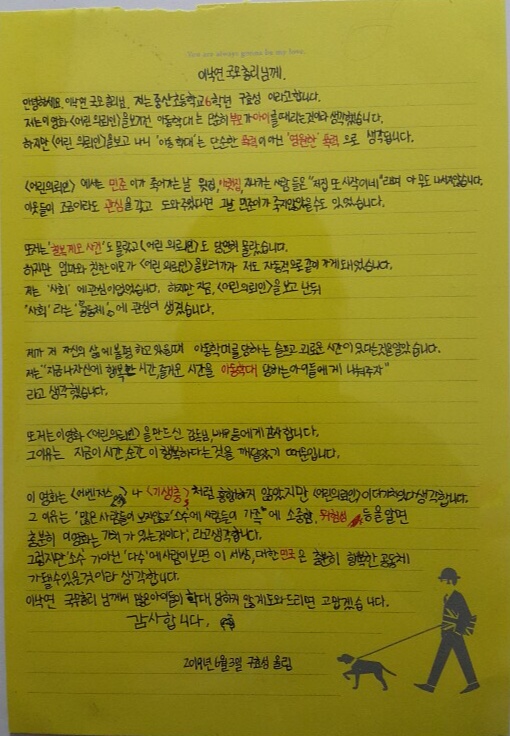 You are always gonna be my love.
이낙연 국무총리님께.
안녕하세요. 이낙연 국무 총리님. 저는 중산초등학교 6학년 구효성 이라고합니다.
저는이영화 <어린 의뢰인>을보기전 아동학대는 단순히 부모가아이를때리는것이라 생각했습니다.
하지만 <어린 의뢰인>을보고 나니 '아동 학대'는 단순한 폭력이아닌 "영원한 폭력"으로 생각됩니다.
<어린의뢰인> 에서는 민준 이가 죽어가는 날 윗집, 아랫집, 지나가는 사람들은 "저집 또 시작이네" 라며 아무도 나서지않습니다.
이웃들이 조금이라도 관심을 갖고 도와주었다면 그날 민준이가 죽지않았을수도 있었습니다.
또저는 '칠곡계모 사건'도 몰랐고 <어린 의뢰인>도 당연히 몰랐습니다.
하지만 엄마와 친한 이모가 <어린 의뢰인>을보러가자 저도 자동적으로같이 가게되었습니다.
저는 '사회'에 관심이없었습니다. 하지만 저는, <어린의뢰인>을보고 난뒤
"사회' 라는 '공동체'에 관심이 생겼습니다.
제가 저 자신의 삶에 불평 하고있을때 아동학대를당하는 슬프고 괴로운 시간이 있다는것을알았 습니다.
저는 "지금나자신에 행복한 시간,즐거운 시간을 아동학대 당하는아이들에게 나눠주자"
라고 생각했습니다.
또저는이영화 <어린의뢰인>을만드신 감독님,배우들에게 감사합니다.
그이유는 지금이시간,순간이행복하다는것을 깨달았기 때문입니다.
이 영화는 <어벤져스> 나 <기생충>처럼 흥행하지 않았지만 <어린의뢰인>이더가치있다생각합니다.
그 이유는 '많은 사람들이 보지않고' 소수'에사람들이 가족"에 소중함, 위험성 등을알면
충분히 이영화는 가치가 있는것이다', 라고생각합니다.
그렇지만'소수'가아닌 '다수'에사람이보면 이 세상, 대한민국은 충분히 행복한 공동체
가될수있을것이라 생각합니다.
이낙연 국무총리 님께서 많은아이들이 학대 당하지 않게도와드리면 고맙겠습 니다.
감사합니다.
2019년 6월3일 구효성 올림